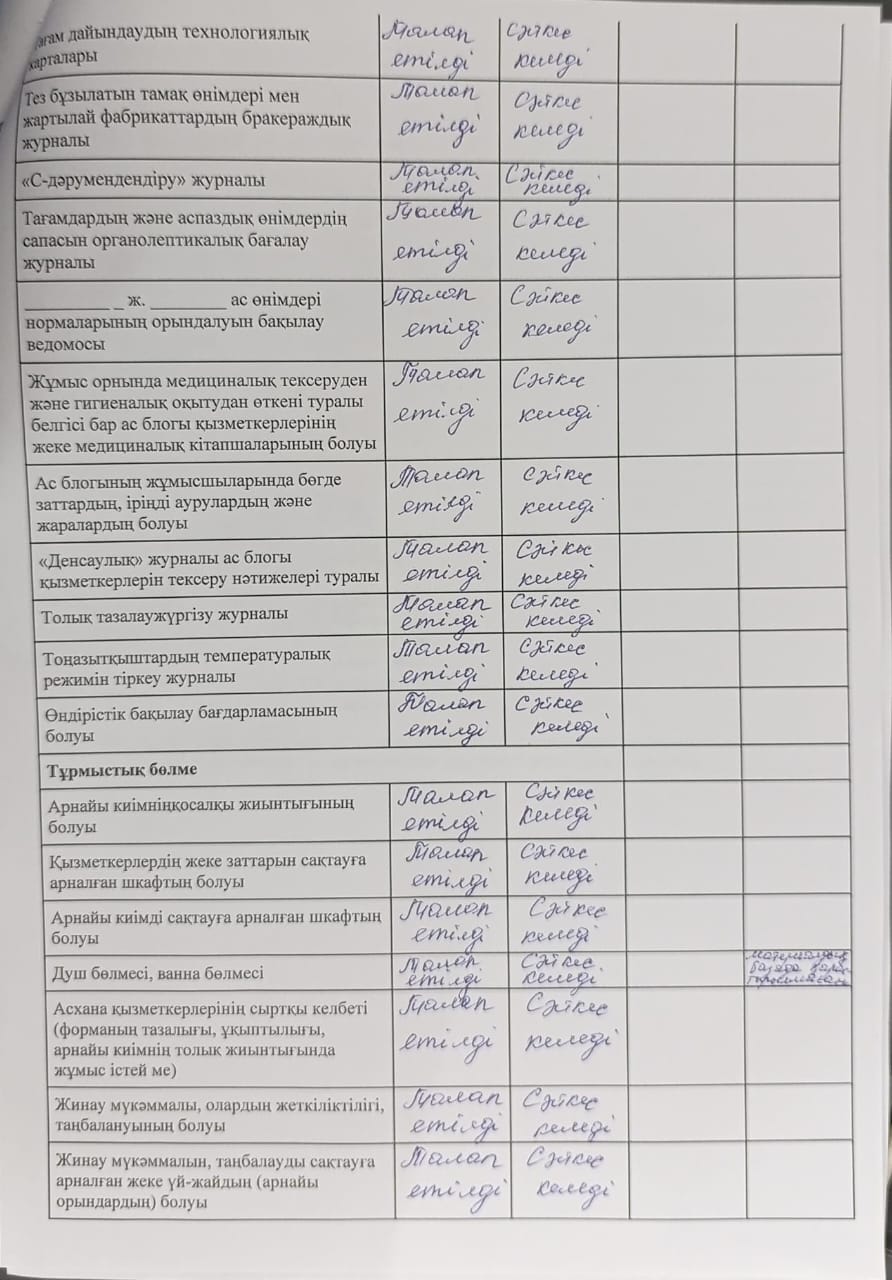 дайындаудың технологиялық Талап Сәйкес
карталары етілді келеді
Тез бұзылатын тамақ өнімдері мен Талап Сәйкес
жартылай фабрикаттардың бракераждық етілді келеді
журналы
«С-дәрумендендіру» журналы Талап етілді Сәйкес келеді
Тағамдардың және аспаздық өнімдердің Талап Сәйкес
сапасын органолептикалық бағалау етілді келеді
журналы
_________ _ ж. ________ ас өнімдері Талап Сәйкес
нормаларының орындалуын бақылау етілді келеді
ведомосы
Жұмыс орнында медициналық тексеруден Талап Сәйкес
және гигиеналық оқытудан өткені туралы етілді келеді
белгісі бар ас блогы қызметкерлерінің
жеке медициналық кітапшаларының болуы
Ас блогының жұмысшыларында бөгде Талап Сәйкес
заттардың, іріңді аурулардың және етілді келеді
жаралардың болуы
«Денсаулық» журналы ас блогы Талап Сәйкес
қызметкерлерін тексеру нәтижелері туралы етілді келеді
Толық тазалаужүргізу журналы Талап етілді Сәйкес келеді
Тоңазытқыштардың температуралық Талап Сәйкес
режимін тіркеу журналы етілді келеді
Өндірістік бақылау бағдарламасының Талап Сәйкес
болуы етілді келеді
Тұрмыстық бөлме
Арнайы киімніңқосалқы жиынтығының Талап Сәйкес
болуы етілді келеді
Қызметкерлердің жеке заттарын сақтауға Талап Сәйкес
арналған шкафтың болуы етілді келеді
Арнайы киімді сақтауға арналған шкафтың Талап Сәйкес
болуы етілді келеді
Душ бөлмесі, ванна бөлмесі Талап етілді Сәйкес келеді
Асхана қызметкерлерінің сыртқы келбеті Талап Сәйкес
(форманың тазалығы, ұқыптылығы, етілді келеді
арнайы киімнің толық жиынтығында
жұмыс істей ме)
Жинау мүкәммалы, олардың жеткіліктілігі, Талап Сәйкес
таңбалануының болуы етілді келеді
Жинау мүкәммалын, таңбалауды сақтауға Талап Сәйкес
арналған жеке үй-жайдың (арнайы етілді келеді
орындардың) болуы